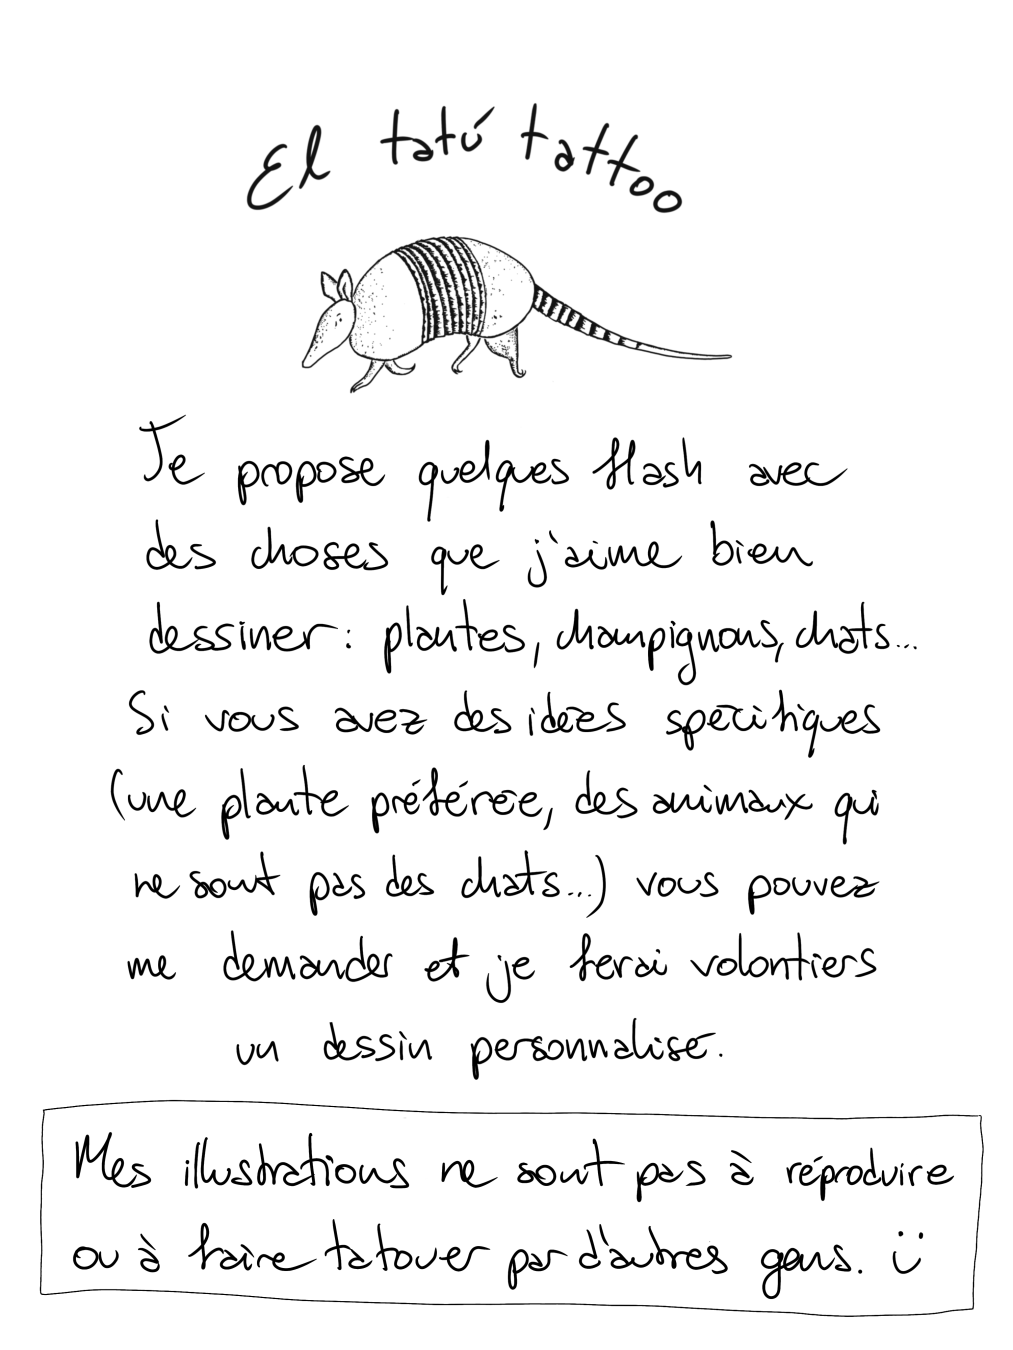 El tatú tattoo
Je propose quelques flash avec
des choses que j'aime bien
dessiner : plantes, champignons, chats...
Si vous avez des idées spécifiques
(une plante préférée, des animaux qui
ne sont pas des chats...) vous pouvez
me demander et je ferai volontiers
un dessin personnalisé.
Mes illustrations ne sont pas à réproduire
ou à faire tatouer par d'autres gens. Ü